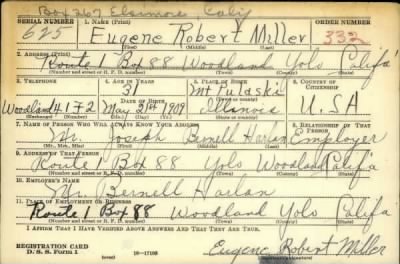 Box 267 Elsinore, Calif
SERIAL NUMBER 1. NAME (Print) ORDER NUMBER
625 Eugene Robert Miller 332
(First) (Middle) (Last)
2. ADDRESS (Print)
Route 1 Box 88 Woodland Yolo Califa
(Number and street or R. F. D. number) (Town) (County) (State)
3. TELEPHONE 4. AGE IN YEARS 5. PLACE OF BIRTH 6. COUNTRY OF CITIZENSHIP
31 Mt Pulaski
DATE OF BIRTH (Town or county)
Woodland 41F2 May 21st 1909 Illinois U.S.A
(Exchange) (No.) (Mo.) (Day) (Yr.) (State or country)
7. NAME OF PERSON WHO WILL ALWAYS KNOW YOUR ADDRESS 8. RELATIONSHIP OF THAT PERSON
Mr. Joseph Bernell Harlan Employer
(Mr., Mrs., Miss) (First) (Middle) (Last)
9. ADDRESS OF THAT PERSON
Route 1 Box 88 Yolo Woodland Califa
(Number and street or R. F. D. number) (Town) (County) (State)
10. EMPLOYER'S NAME
Mr. Bernell Harlan
11. PLACE OF EMPLOYMENT OR BUSINESS
Route 1 Box 88 Woodland Yolo Califa
(Number and street or R. F. D. number) (Town) (County) (State)
I AFFIRM THAT I HAVE VERIFIED ABOVE ANSWERS AND THAT THEY ARE TRUE.
REGISTRATION CARD
D. S. S. Form 1 (over) 16-17105 Eugene Robert Miller